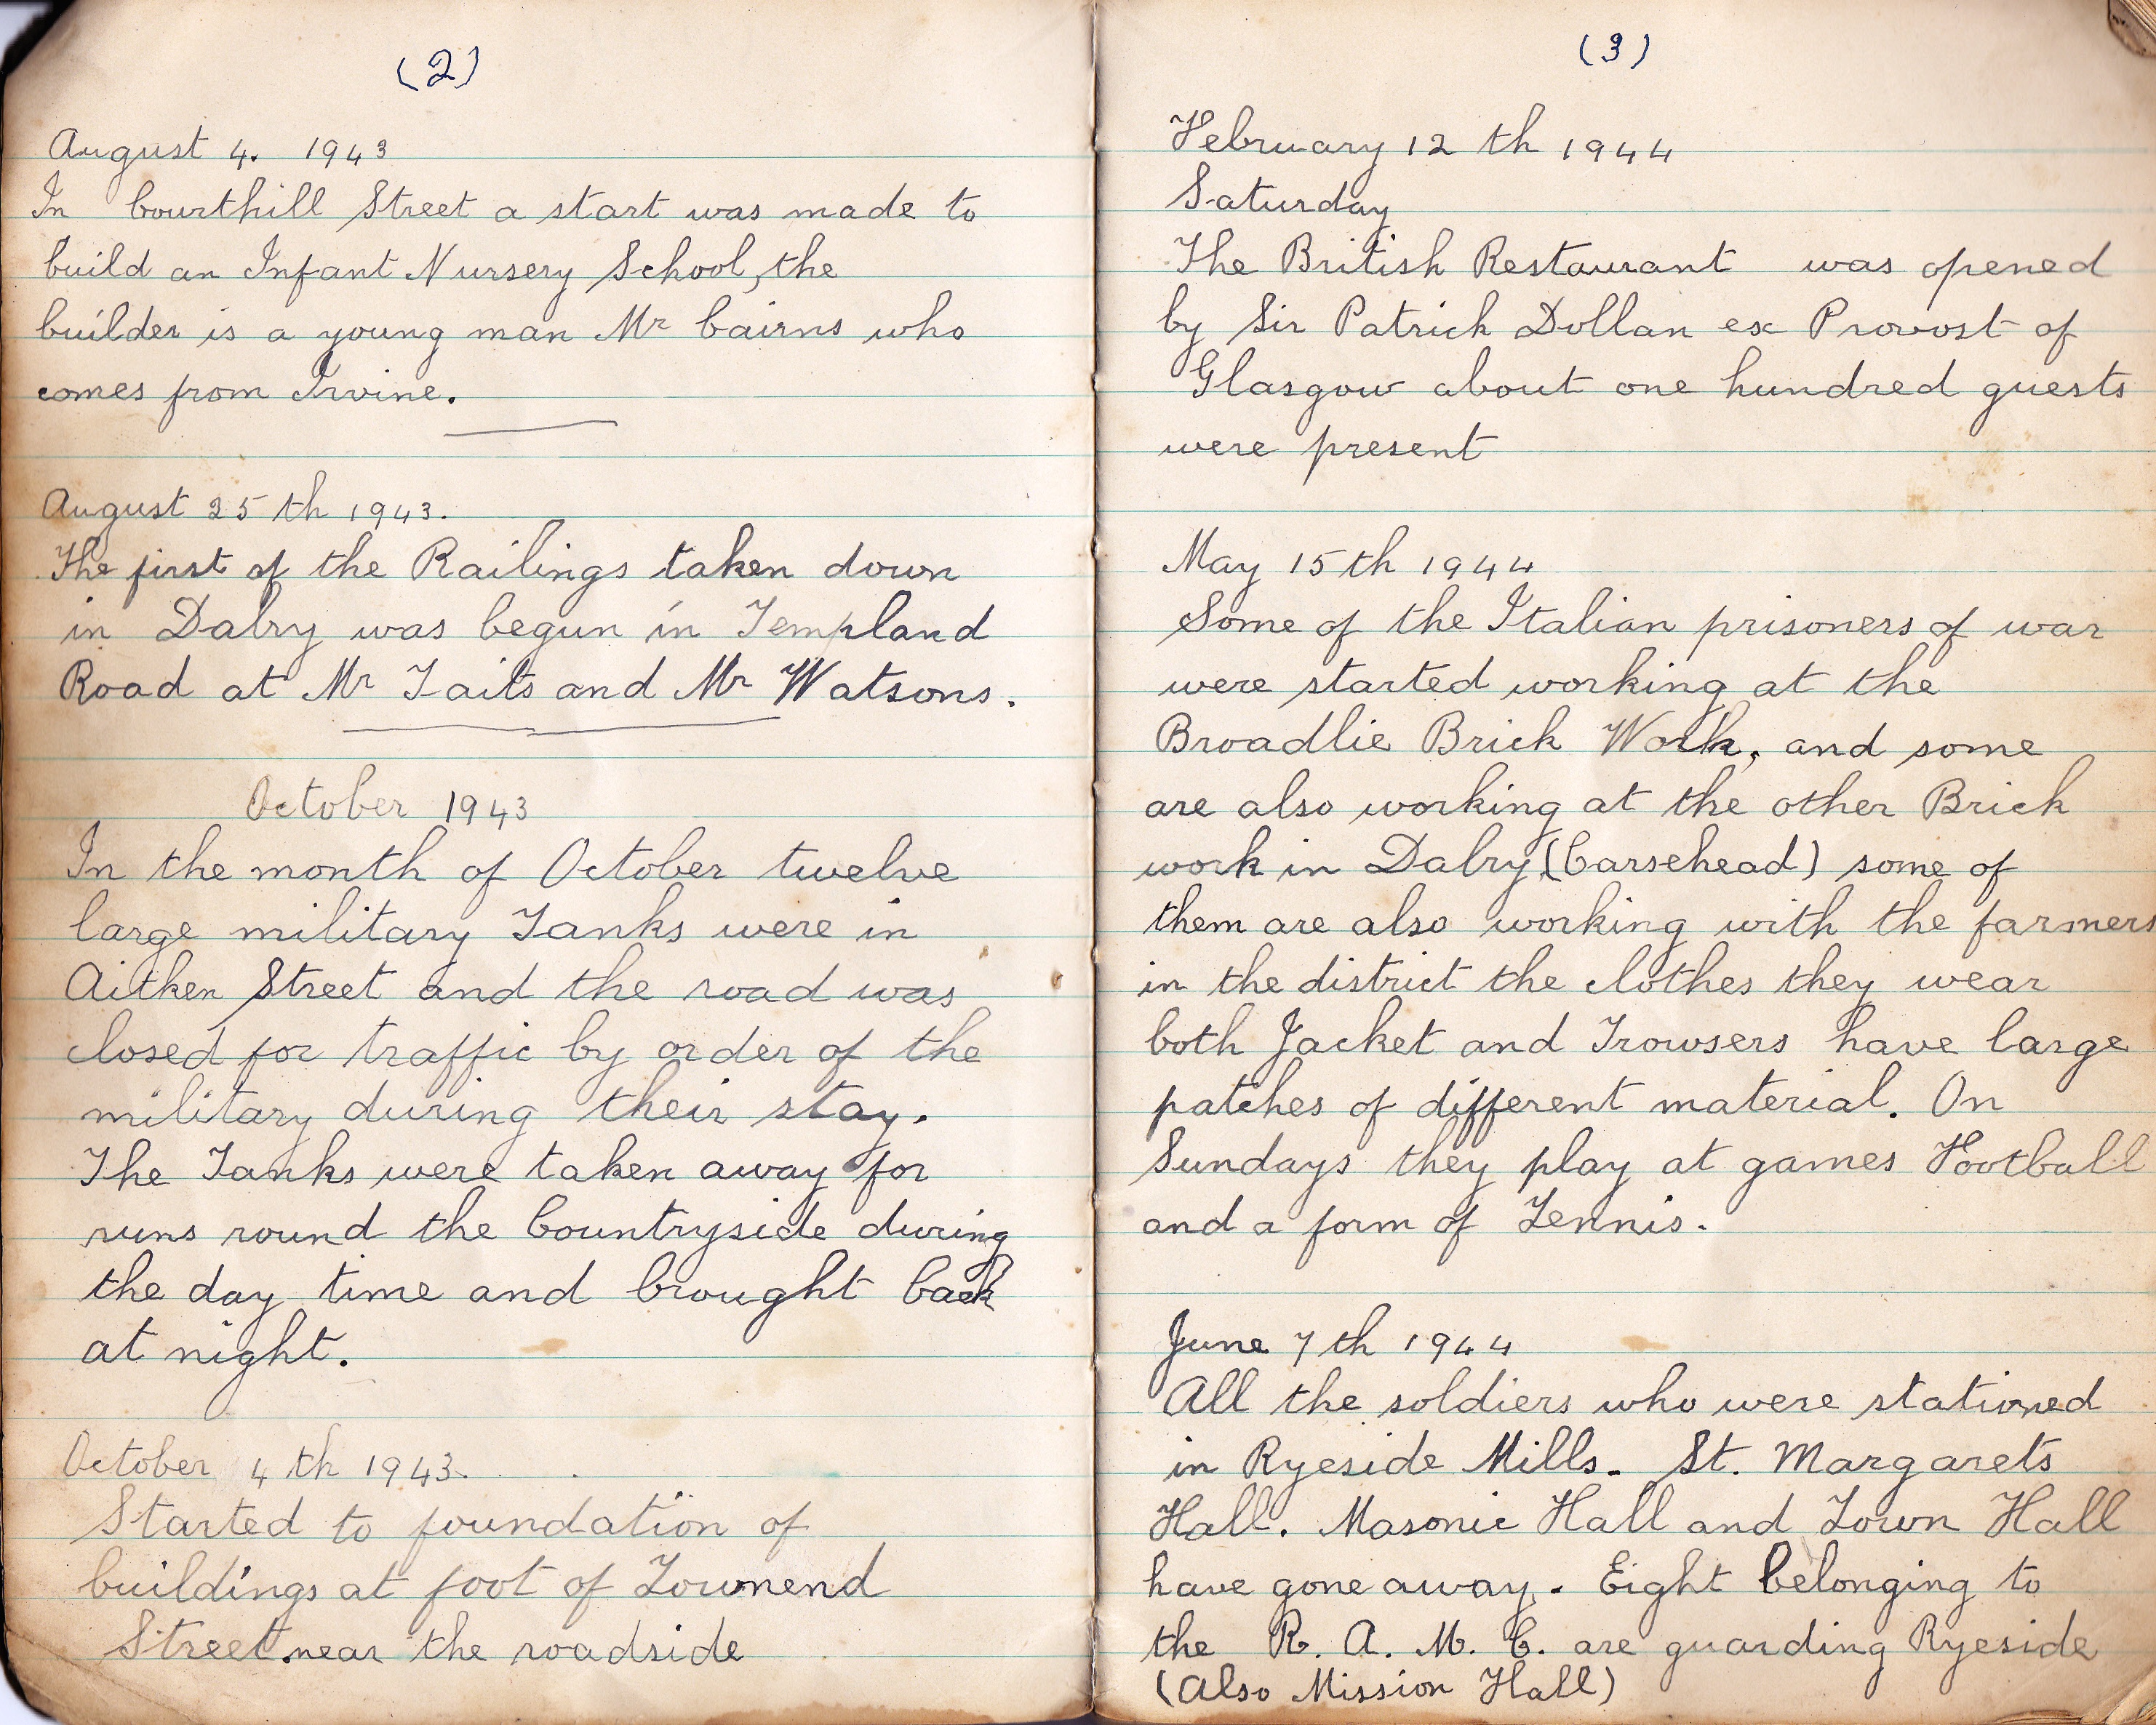 (2)
August 4. 1943
In Courthill Street a start was made to
build an Infant Nursery School, the
builder is a young man Mr Cairns who
comes from Irvine.
August 25 th 1943.
The first of the Railings taken down
in Dalry was begun in Templand
Road at Mr Taits and Mr Watsons.
October 1943
In the month of October twelve
large military Tanks were in
Aitken Street and the road was
closed for traffic by order of the
military during their stay.
The Tanks were taken away for
runs round the Countryside during
the day time and brought back
at night.
October 4 th 1943.
Started to foundation of
buildings at foot of Townend
Street near the roadside
(3)
February 12 th 1944
Saturday
The British Restaurant was opened
by Sir Patrick Dollan ex Provost of
Glasgow about one hundred guests
were present
May 15 th 1944
Some of the Italian prisoners of war
were started working at the
Broadlie Brick Work, and some
are also working at the other Brick
work in Dalry (Carsehead) some of
them are also working with the farmers
in the district the clothes they wear
both Jacket and Trowsers have large
patches of different material. On
Sundays they play at games Football
and a form of Tennis.
June 7 th 1944
All the soldiers who were stationed
in Ryeside Mills. St. Margarets
Hall. Masonic Hall and Town Hall
have gone away. Eight belonging to
the R. A. M. C. are guarding Ryeside
(Also Mission Hall)